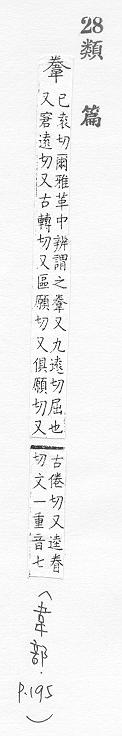 28 類篇
韏
已袁切爾雅革中辨謂之韏又九遠切屈也
又窘遠切又古轉切又區願切又俱願切又
古倦切又逵眷
切文一重音七
(韋部.P.195)